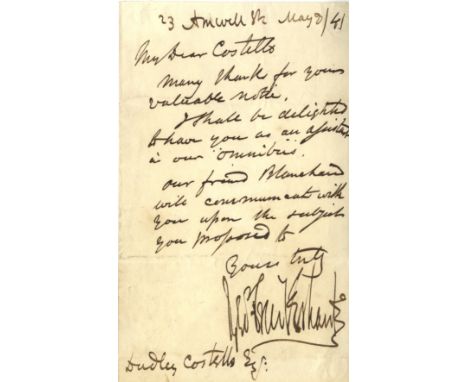 23 Amwell St May 8/41
My Dear Costello
Many thanks for your
valuable note.
I shall be delighted
to have you as an assistant
in our "omnibus".
our friend Blanchard
will communicate with
you upon the subject
you proposed to
Yours truly
Geo Cruikshank
Dudley Costello Esq: